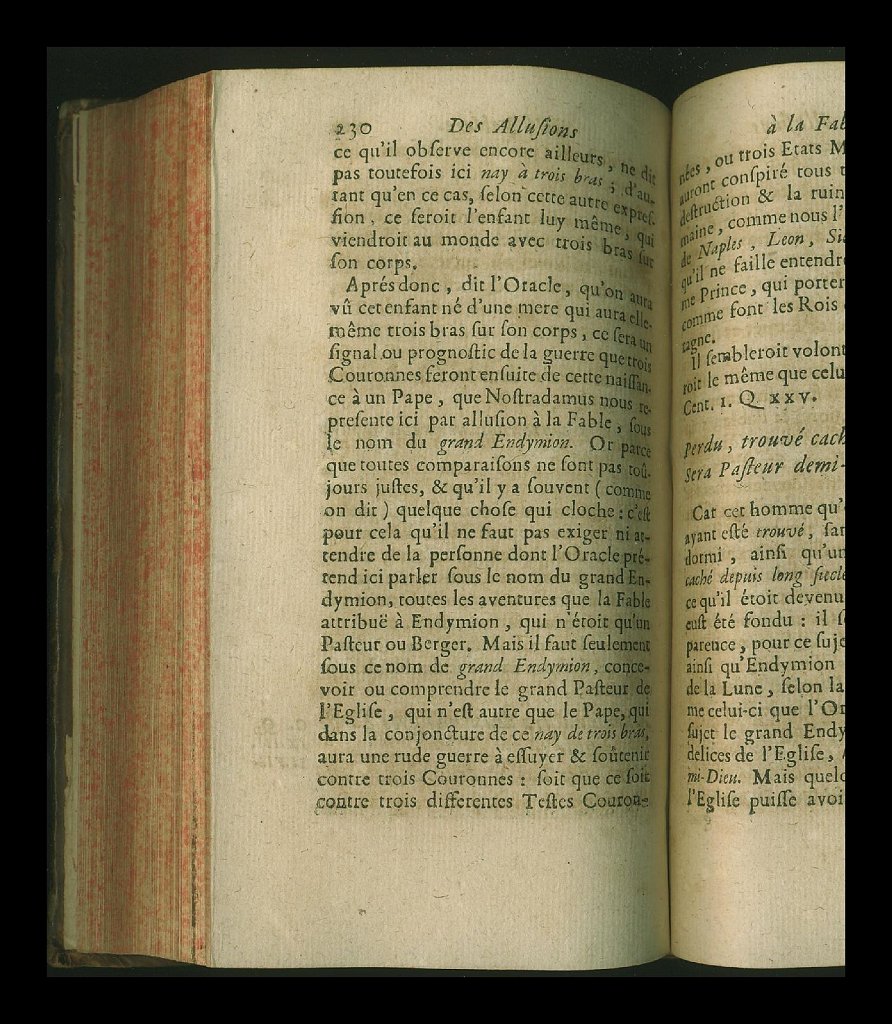 230 Des Alluſions
ce qu'il obſerve encore ailleurs, ne dit
pas toutefois ici nay à trois bras; d'au-
tant qu'en ce cas, ſelon cette autre expreſ-
ſion, ce ſeroit l'enfant luy même, qui
viendroit au monde avec trois bras ſur
ſon corps.
Aprés donc, dit l'Oracle, qu'on aura
vû cet enfant né d'une mere qui aura elle-
même trois bras ſur ſon corps, ce ſera un
ſignal ou prognoſtic de la guerre que trois
Couronnes feront enſuite de cette naiſſan-
ce à un Pape, que Noſtradamus nous re-
preſente ici par alluſion à la Fable, ſous
le nom du grand Endymion. Or parce
que toutes comparaiſons ne ſont pas toû-
jours juſtes, & qu'il y a ſouvent (comme
on dit) quelque choſe qui cloche: c'eſt
pour cela qu'il ne faut pas exiger ni at-
tendre de la perſonne dont l'Oracle pré-
tend ici parler ſous le nom du grand En-
dymion, toutes les aventures que la Fable
attribuë à Endymion, qui n'étoit qu'un
Paſteur ou Berger. Mais il faut ſeulement
ſous ce nom de grand Endymion, conce-
voir ou comprendre le grand Paſteur de
l'Egliſe, qui n'eſt autre que le Pape, qui
dans la conjoncture de ce nay de trois bras,
aura une rude guerre à eſſuyer & ſoûtenir
contre trois Couronnes: ſoit que ce ſoit
contre trois differentes Teſtes Couron-
à la Fab
nées, ou trois Etats M
auront conſpiré tous t
deſtruction & la ruin
maine, comme nous l'
de Naples, Leon, Sic
qu'il ne faille entendre
me Prince, qui porter
comme font les Rois
tagne.
Il ſembleroit volont
roit le même que celu
Cent. 1. Q. XXV.
Perdu, trouvé cach
Sera Paſteur demi-
Car cet homme qu'
ayant eſté trouvé, ſan
dormi, ainſi qu'un
caché depuis long ſiecle
ce qu'il étoit devenu
euſt été fondu: il ſ
parence, pour ce ſuje
ainſi qu'Endymion
de la Lune, ſelon la
me celui-ci que l'Or
ſujet le grand Endy
delices de l'Egliſe,
mi-Dieu. Mais quelq
l'Egliſe puiſſe avoi